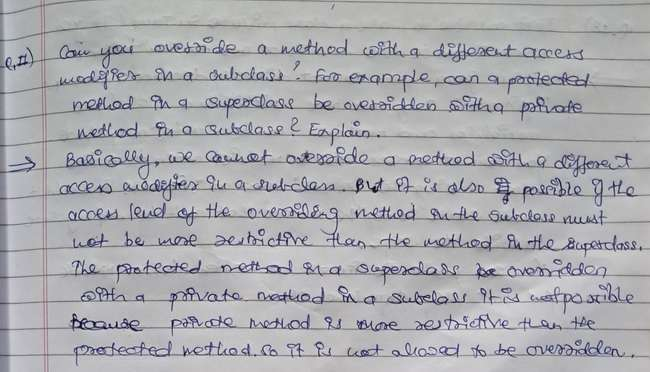 Q.II) Can you override a method with a different access
modifier in a subclass? For example, can a protected
method in a superclass be overridden with a private
method in a subclass? Explain.
→ Basically, we cannot override a method with a different
access modifier in a subclass. But it is also possible if the
access level of the overriding method in the subclass must
not be more restrictive than the method in the superclass.
The protected method in a superclass be overridden
with a private method in a subclass it is not possible
because private method is more restrictive than the
protected method. so it is not allowed to be overridden.